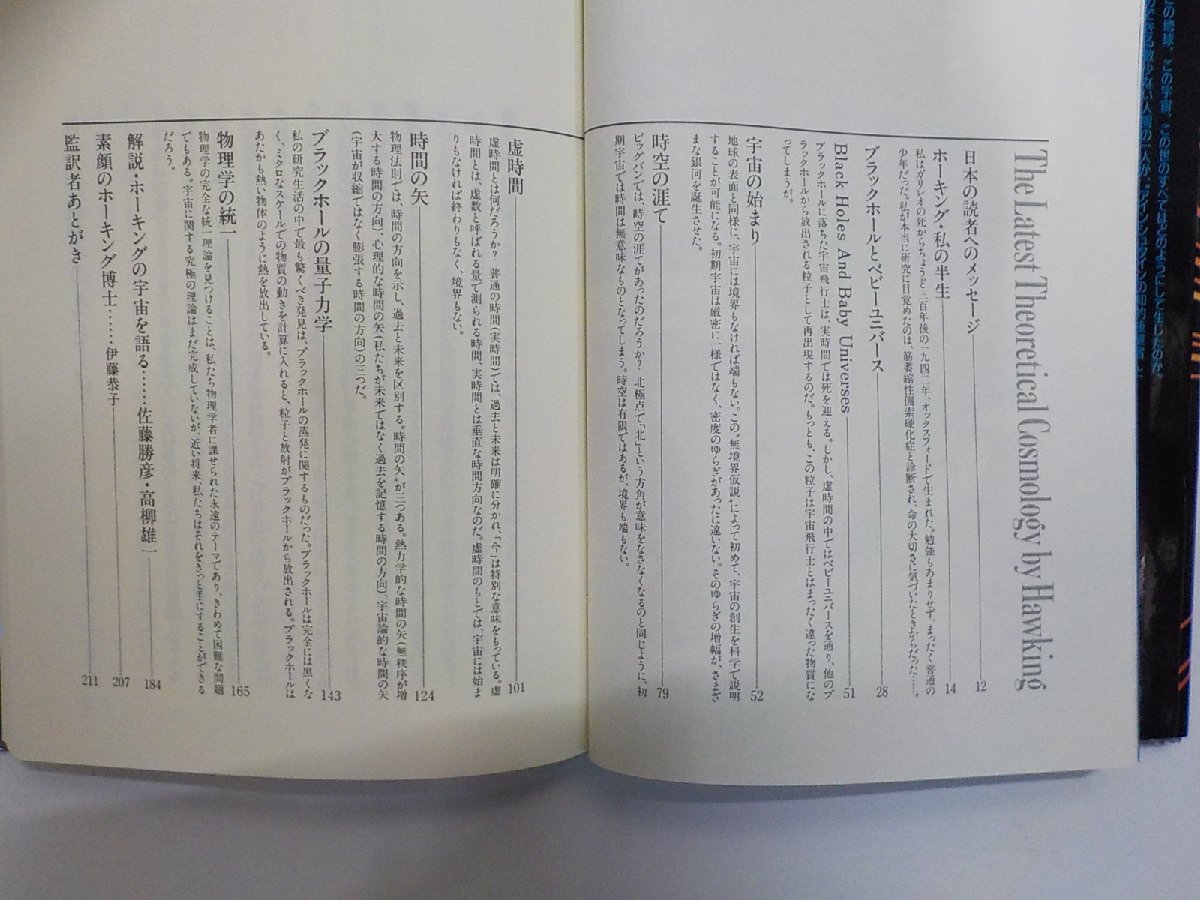 The Latest Theoretical Cosmology by Hawking
日本の読者へのメッセージ 12
ホーキング・私の半生 14
私はガリレオの死からちょうど三百年後の一九四二年、オックスフォードで生まれた。勉強もあまりせず、まったく普通の
少年だった私が本当に研究に目覚めたのは、筋萎縮性側索硬化症と診断され、命の大切さに気づいたときからだった……。
ブラックホールとベビーユニバース 28
Black Holes And Baby Universes 51
ブラックホールに落ちた宇宙飛行士は、実時間では死を迎える。しかし、虚時間の中ではベビーユニバースを通り、他のブ
ラックホールから放出される粒子として再出現するのだ。もっとも、この粒子は宇宙飛行士とはまったく違った物質にな
ってしまうが。
宇宙の始まり 52
地球の表面と同様に、宇宙には境界もなければ端もない。この“無境界仮説”によって初めて、宇宙の創生を科学で説明
することが可能になる。初期宇宙は厳密に一様ではなく、密度のゆらぎがあったに違いない。そのゆらぎの増幅が、さまざ
まな銀河を誕生させた。
時空の涯て 79
ビッグバンでは、時空の涯てがあったのだろうか? 北極点で「北」という方角が意味をなさなくなるのと同じように、初
期宇宙では時間は無意味なものとなってしまう。時空は有限ではあるが、境界も端もない。
虚時間 101
虚時間とは何だろうか? 普通の時間(実時間)では、過去と未来は明確に分かれ、「今」は特別な意味をもっている。虚
時間とは、虚数と呼ばれる量で測られる時間、実時間とは垂直な時間方向なのだ。虚時間のもとでは、宇宙には始ま
りもなければ終わりもなく、境界もない。
時間の矢 124
物理法則では、時間の方向を示し、過去と未来を区別する“時間の矢”が三つある。熱力学的な時間の矢(無秩序が増
大する時間の方向)、心理的な時間の矢(私たちが未来ではなく過去を記憶する時間の方向)、宇宙論的な時間の矢
(宇宙が収縮ではなく膨張する時間の方向)の三つだ。
ブラックホールの量子力学 143
私の研究生活の中で最も驚くべき発見は、ブラックホールの蒸発に関するものだった。ブラックホールは完全には黒くな
く、ミクロなスケールでの物質の動きを計算に入れると、粒子と放射がブラックホールから放出される。ブラックホールは
あたかも熱い物体のように熱を放出している。
物理学の統一 165
物理学の完全な統一理論を見つけることは、私たち物理学者に課せられた永遠のテーマであり、きわめて困難な問題
でもある。宇宙に関する究極の理論はまだ完成していないが、近い将来、私たちはそれをきっと手にすることができる
だろう。
解説・ホーキングの宇宙を語る……佐藤勝彦・高柳雄一 184
素顔のホーキング博士……伊藤恭子 207
監訳者あとがき 211
この地球、この宇宙、この世のすべてはどのようにして生じたのか。